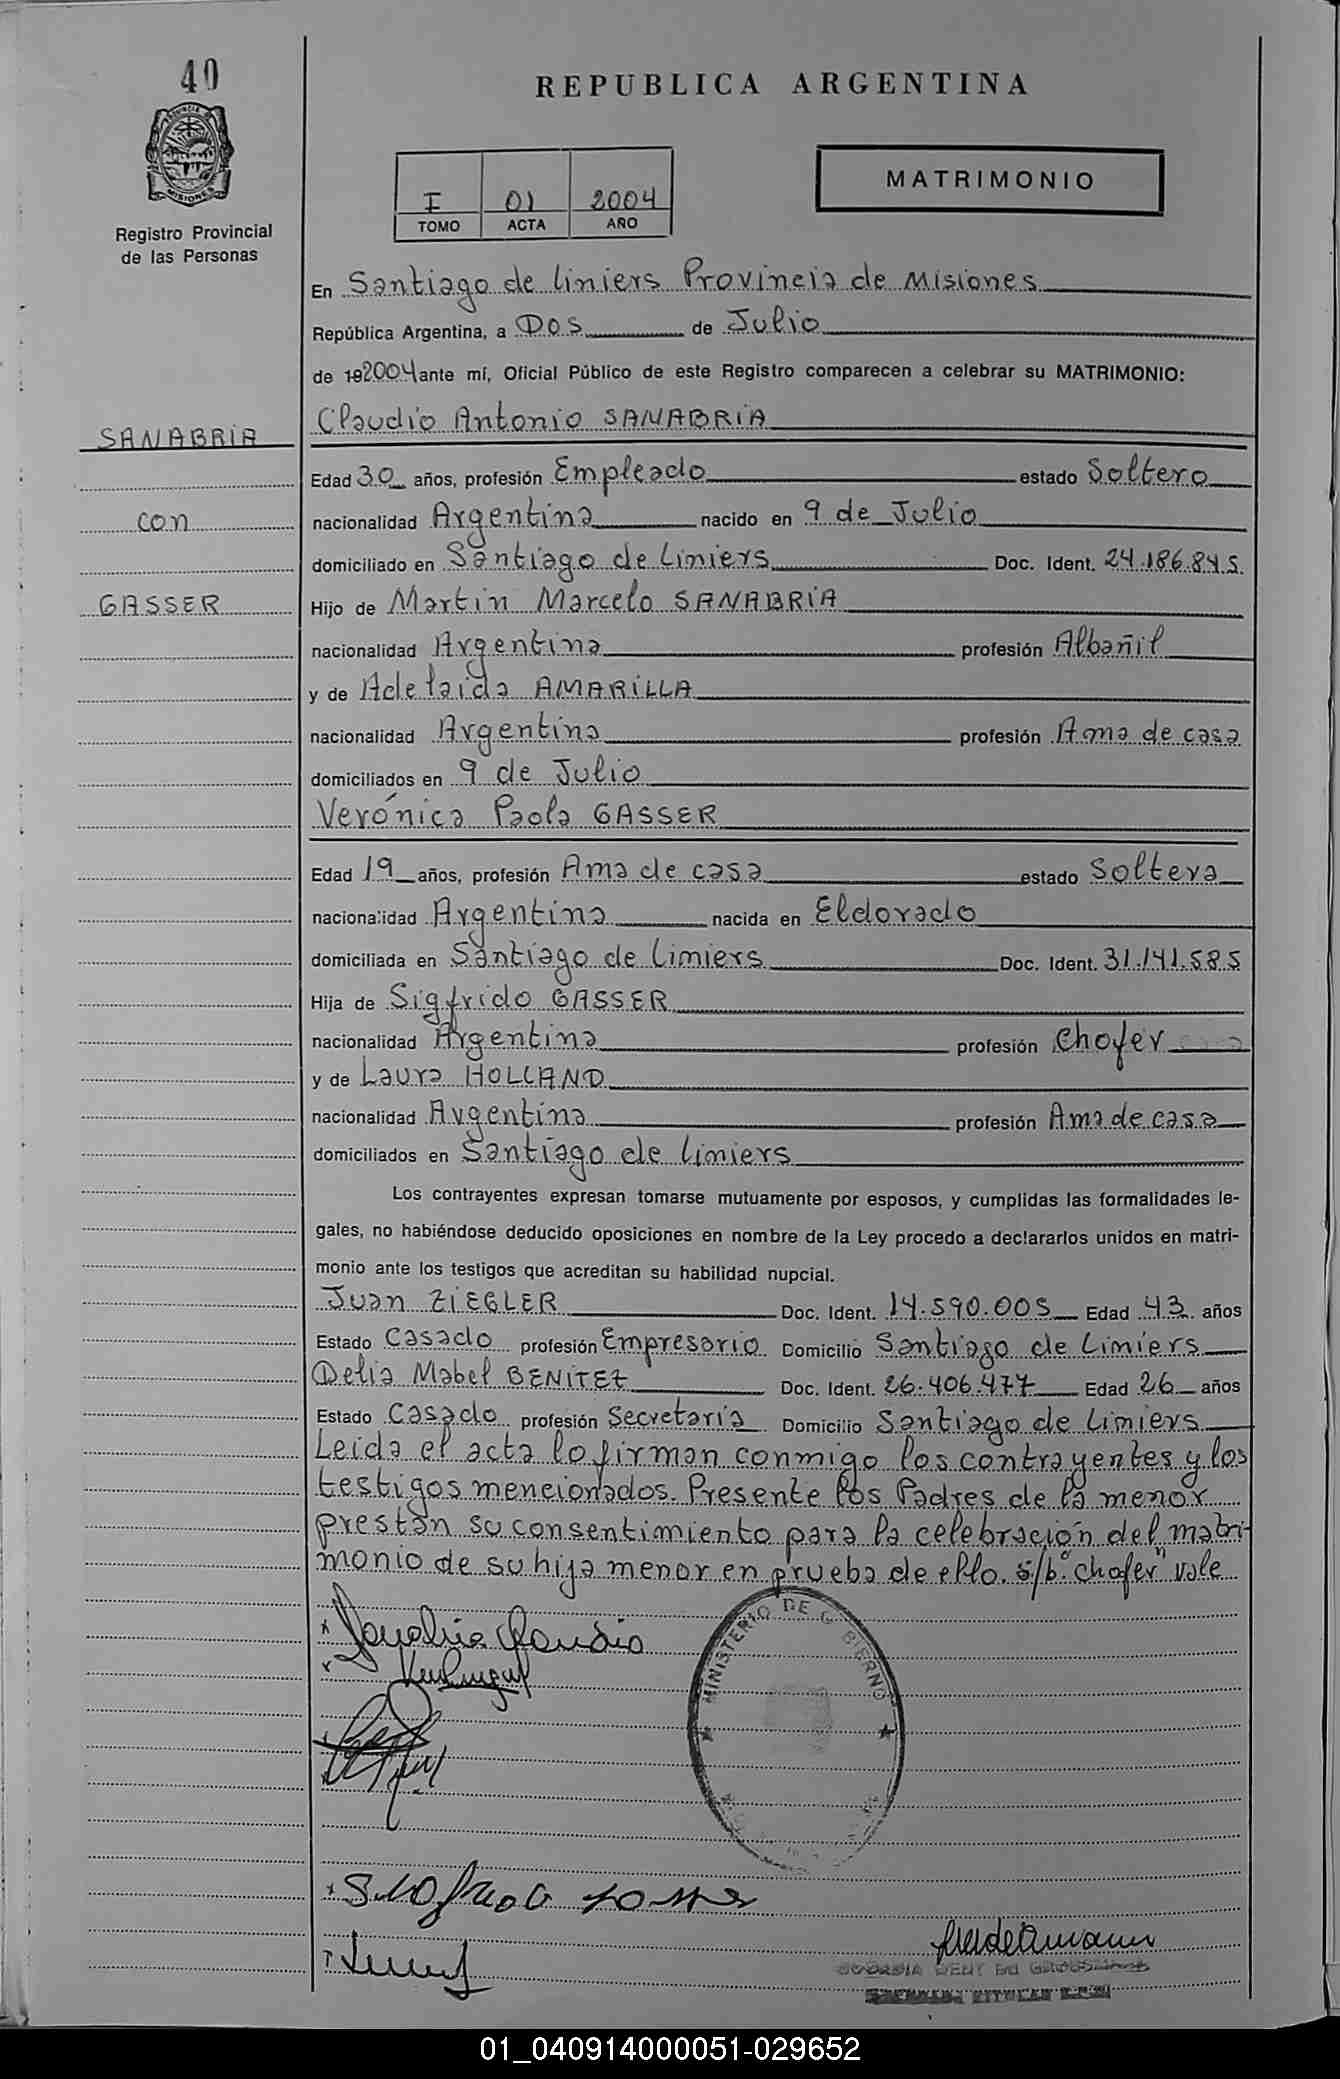 40
REPUBLICA ARGENTINA
PROVINCIA DE
MISIONES
Registro Provincial
de las Personas
I 01 2004
TOMO ACTA AÑO
MATRIMONIO
En Santiago de Liniers Provincia de Misiones
República Argentina, a Dos de Julio
de 192004 ante mí, Oficial Público de este Registro comparecen a celebrar su MATRIMONIO:
Claudio Antonio SANABRIA
SANABRIA
Edad 30 años, profesión Empleado estado Soltero
con
nacionalidad Argentina nacido en 9 de Julio
domiciliado en Santiago de Liniers Doc. Ident. 24.186.845
GASSER
Hijo de Martin Marcelo SANABRIA
nacionalidad Argentina profesión Albañil
y de Adelaida AMARILLA
nacionalidad Argentina profesión Ama de casa
domiciliados en 9 de Julio
Verónica Paola GASSER
Edad 19 años, profesión Ama de casa estado Soltera
nacionalidad Argentina nacida en Eldorado
domiciliada en Santiago de Liniers Doc. Ident. 31.141.585
Hija de Sigfrido GASSER
nacionalidad Argentina profesión Chofer
y de Laura HOLLAND
nacionalidad Argentina profesión Ama de casa
domiciliados en Santiago de Liniers
Los contrayentes expresan tomarse mutuamente por esposos, y cumplidas las formalidades le-
gales, no habiéndose deducido oposiciones en nombre de la Ley procedo a declararlos unidos en matri-
monio ante los testigos que acreditan su habilidad nupcial.
Juan ZIEGLER Doc. Ident. 14.590.005 Edad 43 años
Estado Casado profesión Empresario Domicilio Santiago de Liniers
Delia Mabel BENITEZ Doc. Ident. 26.406.477 Edad 26 años
Estado Casado profesión Secretaria Domicilio Santiago de Liniers
Leida el acta lo firman conmigo los contrayentes y los
testigos mencionados. Presente los Padres de la menor
prestan su consentimiento para la celebración del matri-
monio de su hija menor en prueba de ello. s/b "chofer" vale
Sanabria Claudio
MINISTERIO DE G BIERNO
01_040914000051-029652